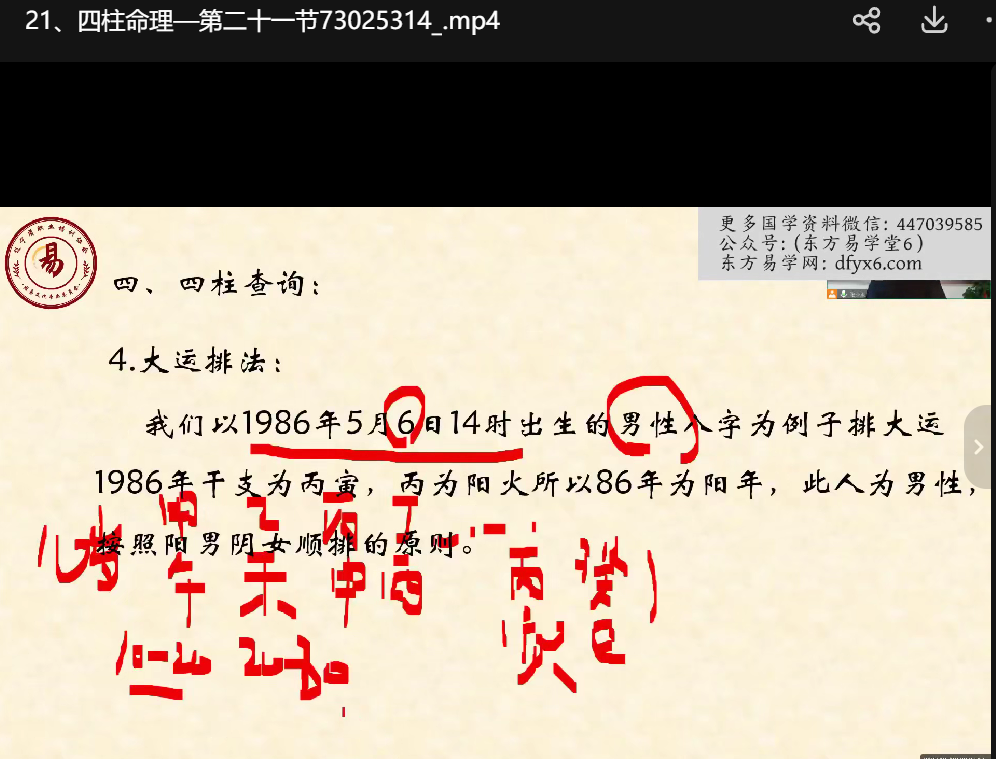 21、四柱命理—第二十一节73025314_.mp4
更多国学资料微信：447039585
公众号：(东方易学堂6)
东方易学网：dfyx6.com
易
四、四柱查询：
4.大运排法：
我们以1986年5月6日14时出生的男性八字为例子排大运
1986年干支为丙寅，丙为阳火所以86年为阳年，此人为男性，
按照阳男阴女顺排的原则。
甲 乙 丙 丁
午 未 申 酉
丙 癸
寅 巳
10-20 20-30